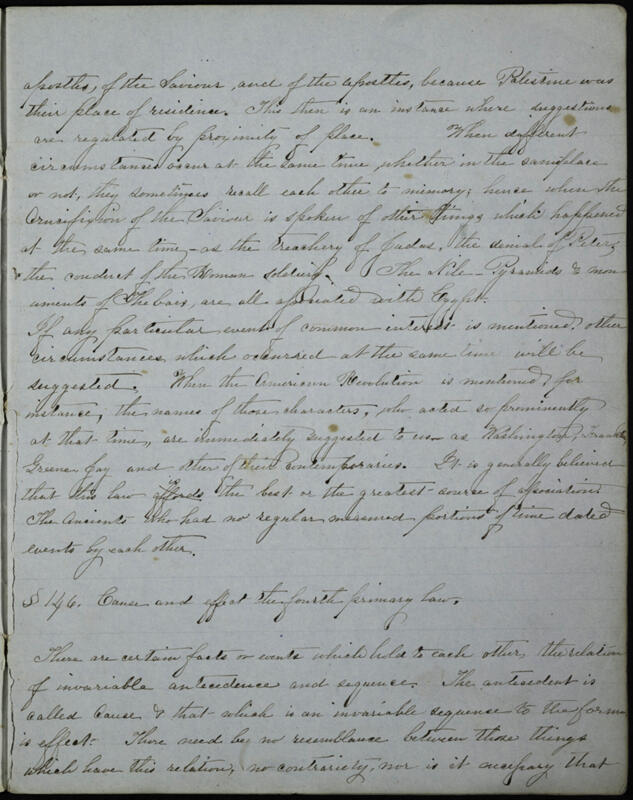 apostles, of the Saviour, and of the apostles, because Palestine was
their place of residence. This then is an instance where suggestions
are regulated by proximity of place. When different
circumstances occur at the same time, whether in the same place
or not, they sometimes recall each other to memory; hence when the
Crucifixion of the Saviour is spoken of other things which happened
at the same time - as the treachery of Judas, the denial of Peter,
the conduct of the Roman soldiers. The Nile - Pyramids & mon-
uments of Thebais, are all associated with Egypt.
If any particular event of common interest is mentioned, other
circumstances which occurred at the same time will be
suggested. When the American Revolution is mentioned, for
instance, the names of those characters, who acted so prominently
at that time, are immediately suggested to us - as Washington, Franklin,
Greene Jay and other of their contemporaries. It is generally believed
that this law affords the best or the greatest source of association.
The Ancients who had no regular measured portions of time dated
events by each other.
§ 146. Cause and effect the fourth primary law.
There are certain facts or events which hold to each other, the relation
of invariable antecedence and sequence. The antecedent is
called Cause & that which is an invariable sequence to the former
is effect. There need be no resemblance between those things
which have this relation, no contrariety, nor is it necessary that